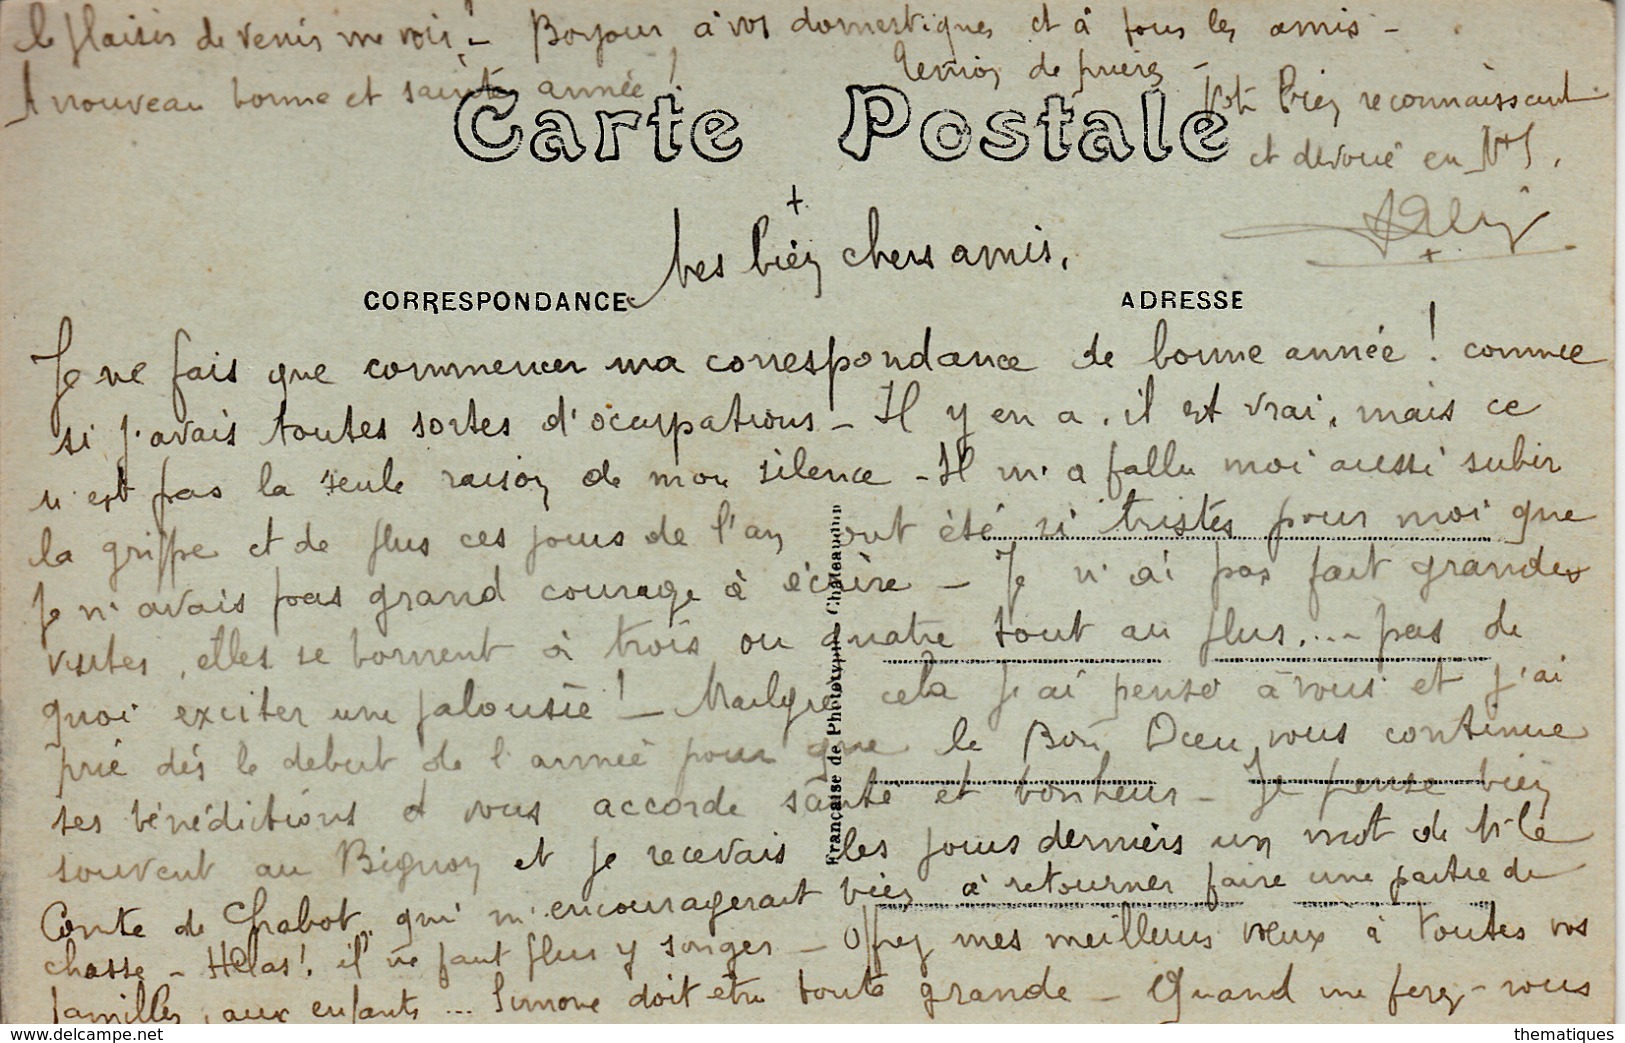 le plaisir de venir me voir ! – Bonjour à vos domestiques et à tous les amis –
A nouveau bonne et sainte année !
Union de prières –
Votre bien reconnaissant
et dévoué en N+S.
Carte Postale
+
Mes bien chers amis,
CORRESPONDANCE
ADRESSE
Je ne fais que commencer ma correspondance de bonne année ! comme
si j'avais toutes sortes d'occupations – Il y en a, il est vrai, mais ce
n'est pas la seule raison de mon silence – Il m'a fallu moi aussi subir
la grippe et de plus ces jours de l'an ont été si tristes pour moi que
je n'avais pas grand courage à écrire – Je n'ai pas fait grandes
visites, elles se bornent à trois ou quatre tout au plus... – pas de
quoi exciter une jalousie ! – Malgré cela j'ai pensé à vous et j'ai
prié dès le début de l'année pour que le Bon Dieu vous continue
ses bénédictions et vous accorde santé et bonheur – Je pense bien
souvent au Bignon et je recevais les jours derniers un mot de Mr le
Comte de Chabot qui m'encouragerait bien à retourner faire une partie de
chasse – Hélas ! il ne faut plus y songer – Offrez mes meilleurs vœux à toutes vos
familles, aux enfants ... Simone doit être toute grande – Quand me ferez-vous
Française de Phototypie Châteaudun
delcampe.net
thematiques